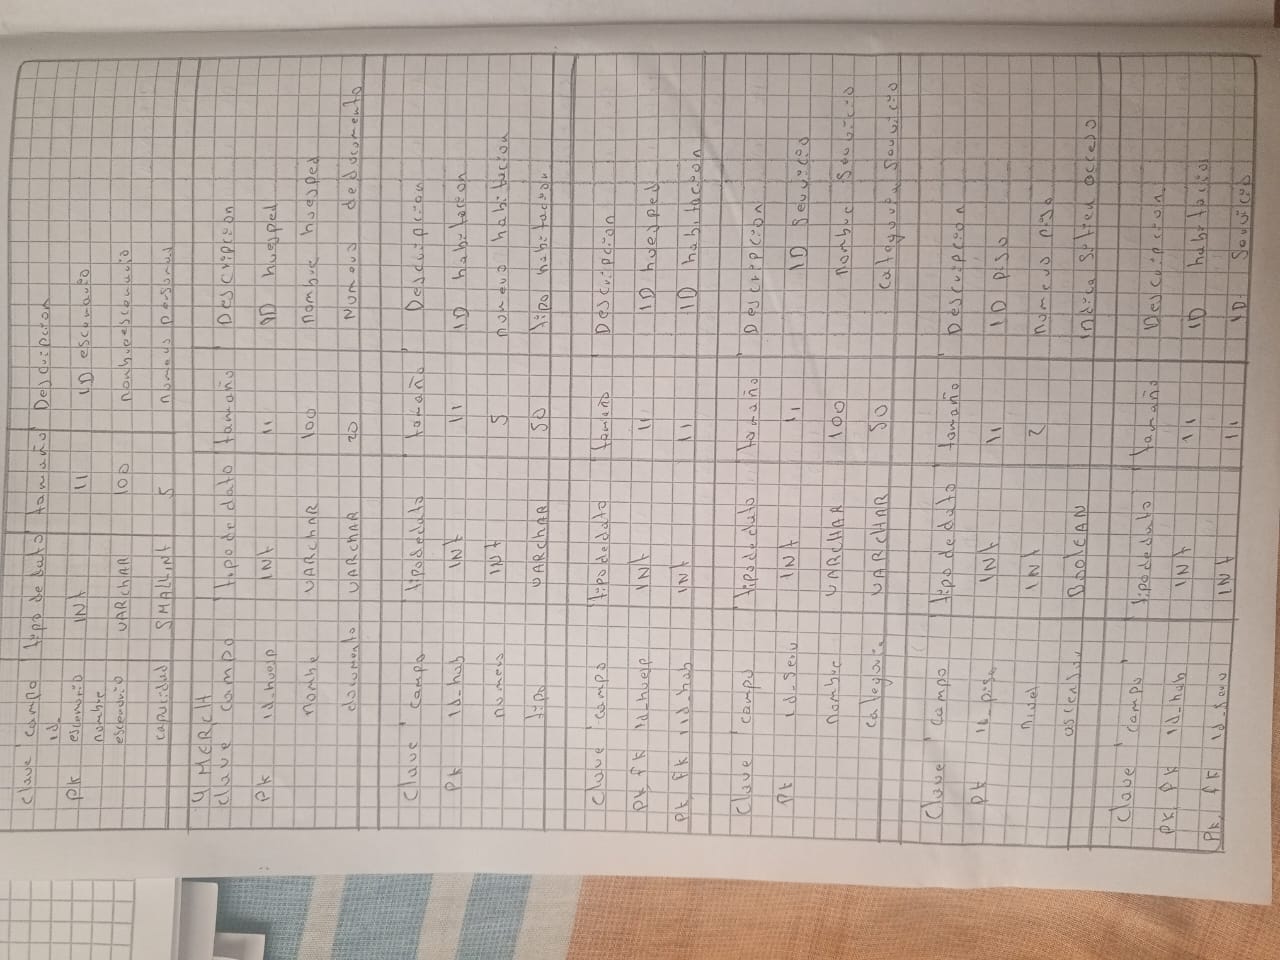 Clave campo tipo de dato tamaño Descripcion
PK id_escenario INt 11 ID escenario
nombre escenario VARChAR 100 nombre escenario
capacidad SMALLINt 5 numero personas
4 MERCH
clave campo tipo de dato tamaño Descripcion
PK id_huesp INt 11 ID huesped
nombre VARChAR 100 nombre huesped
documento VARChAR 20 Numero de documento
Clave campo tipo de dato tamaño Descripcion
PK id_hab INt 11 ID habitacion
numero INt 5 numero habitacion
tipo VARChAR 50 tipo habitacion
Clave campo tipo de dato tamaño Descripcion
PK, fK id_huesp INt 11 ID huesped
PK, fK id_hab INt 11 ID habitacion
Clave campo tipo de dato tamaño Descripcion
PK id_serv INt 11 ID servicio
nombre VARCHAR 100 nombre servicio
categoria VARCHAR 50 categoria servicio
Clave campo tipo de dato tamaño Descripcion
PK id_piso INt 11 ID piso
nivel INt 2 numero piso
ascensor BOOlEAN indica si tien acceso
Clave campo tipo de dato tamaño Descripcion
PK, fK id_hab INt 11 ID habitacion
PK, fK id_serv INt 11 ID servicio